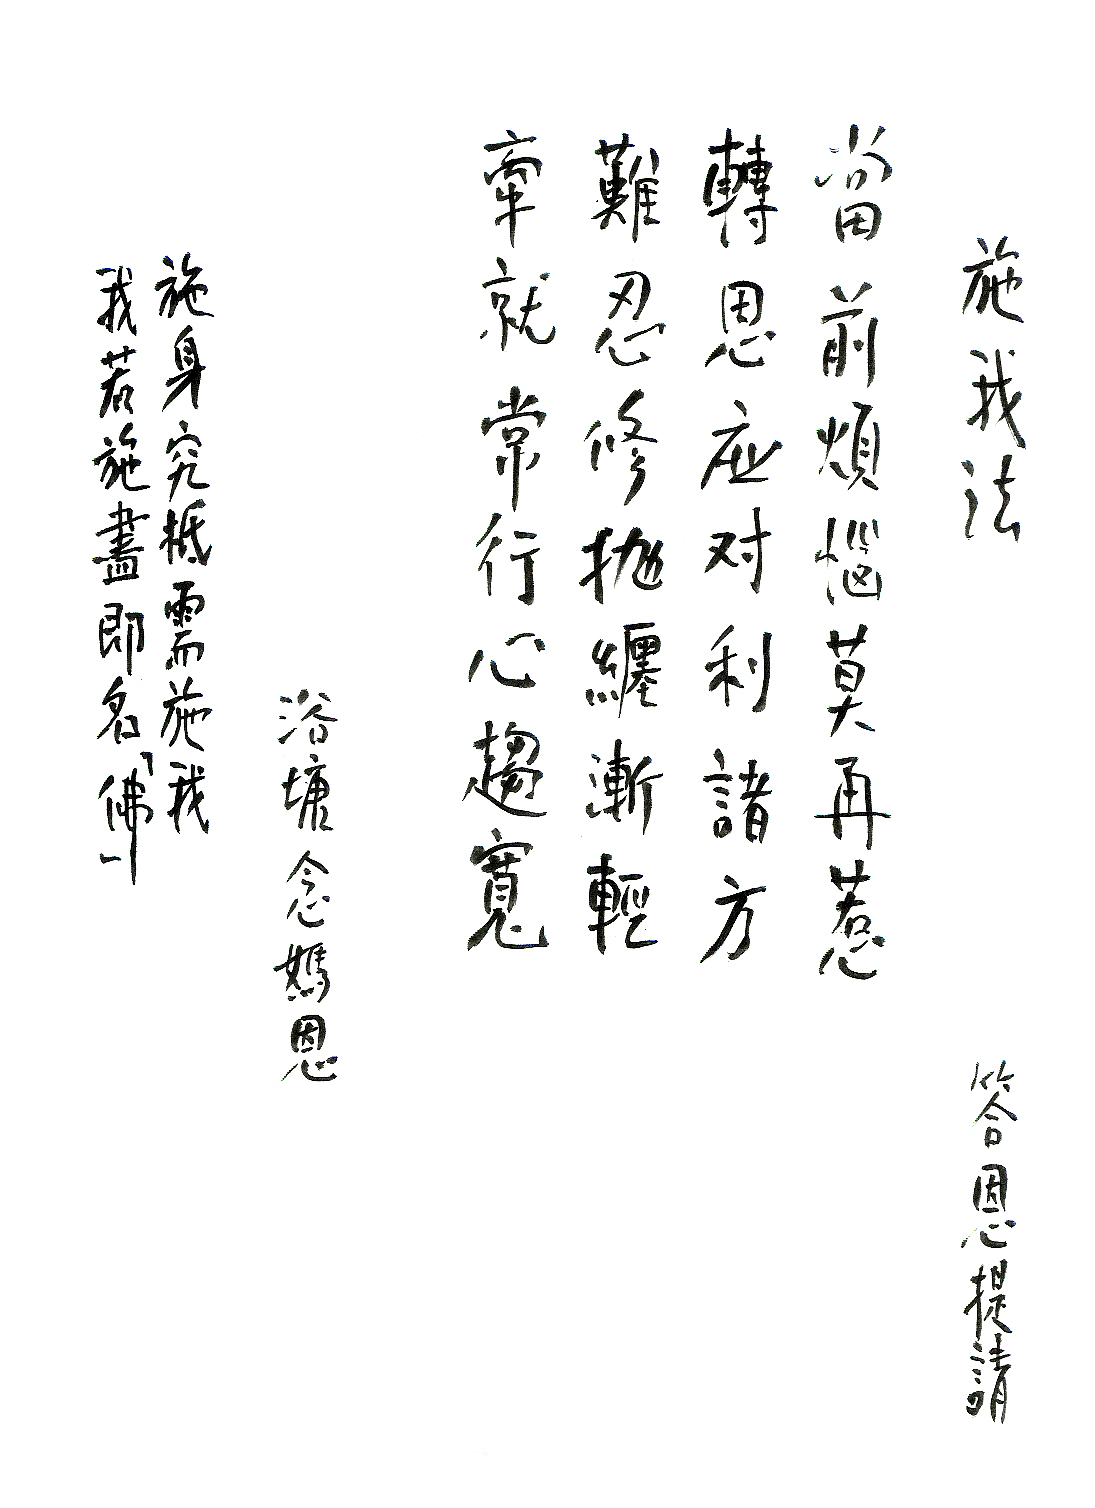 施我法
答恩提請
當前煩惱莫再惹
轉思应对利諸方
難忍修拋纏漸輕
牽就常行心趨寬
浴塘念媽恩
施身究抵需施我
我若施盡即名「佛」